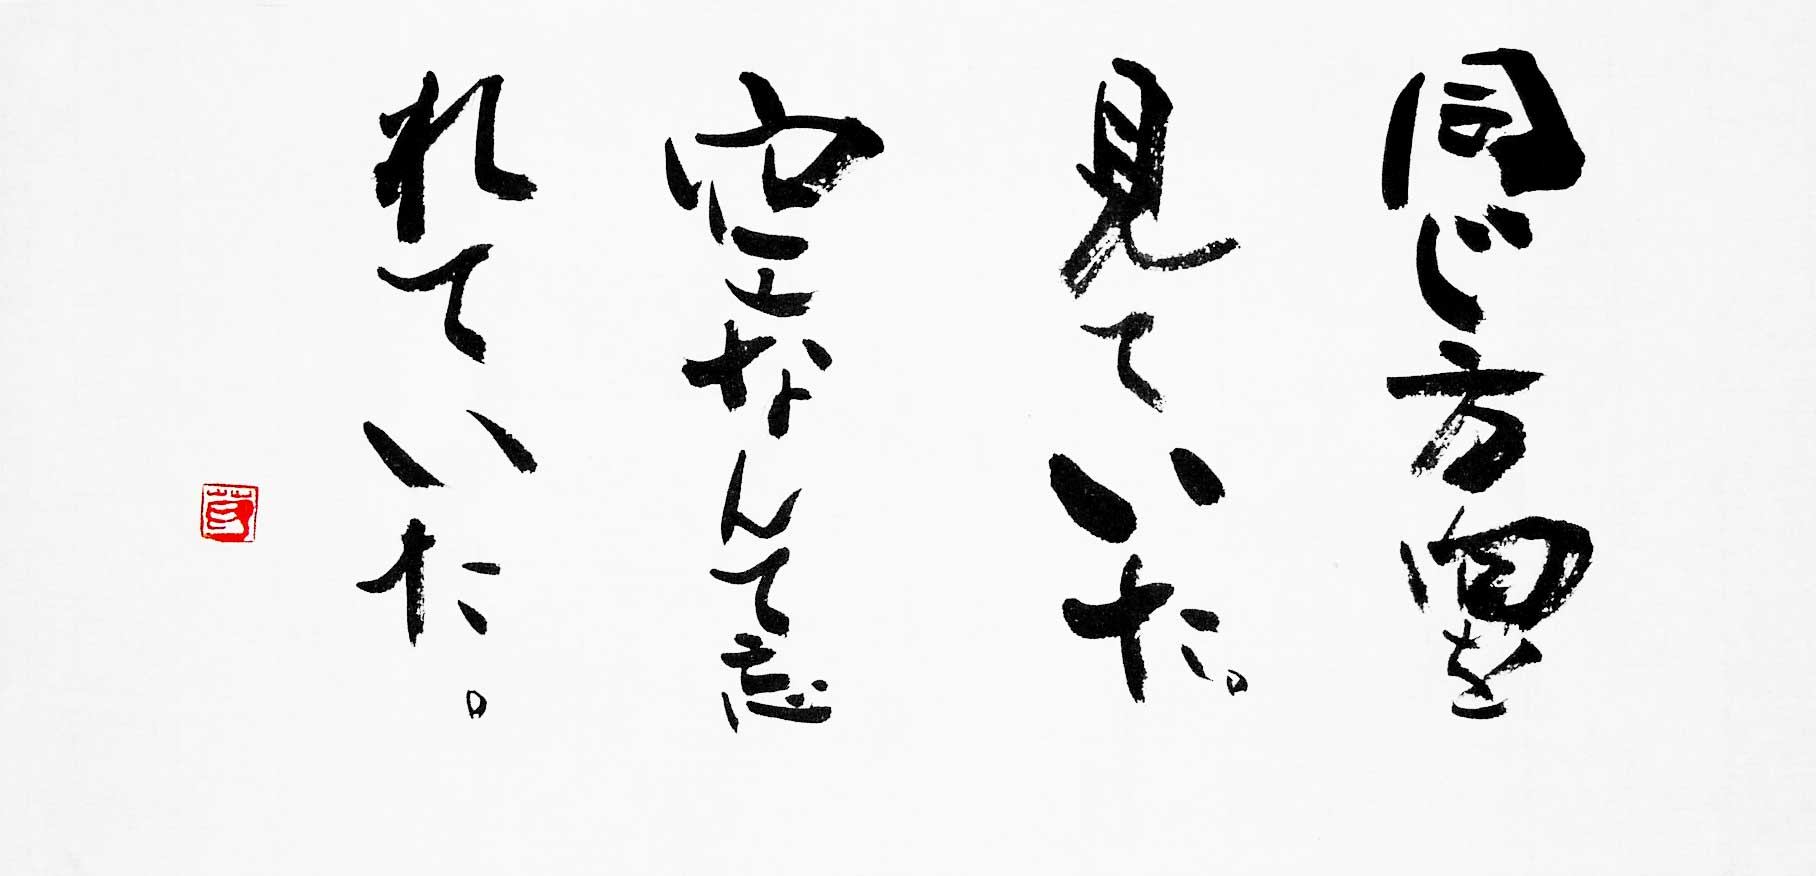 同じ方向を
見ていた。
空なんて忘
れていた。